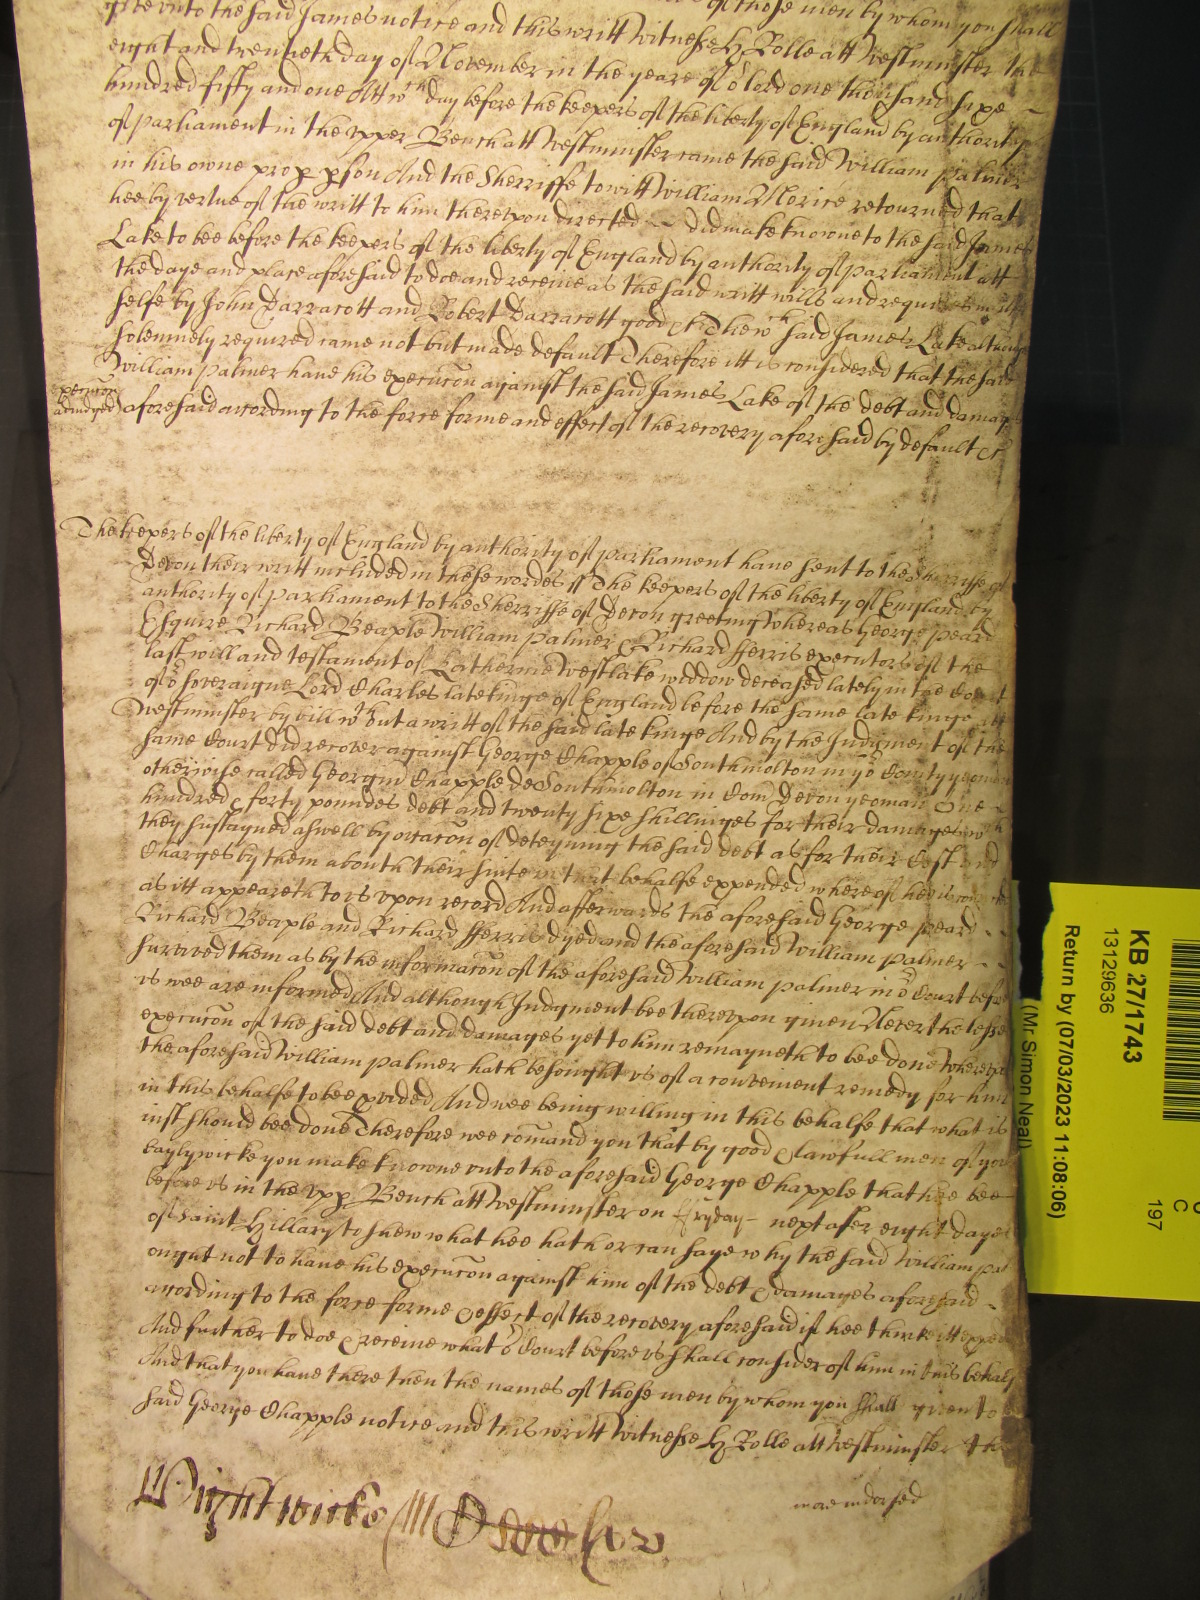 give unto the said James notice and this writt Witnesse H Rolle att Westminster the
eight and twentieth day of November in the yeare of oʳ lord one thousand sixe
hundred fifty and one Att wᶜʰ day before the keepers of the liberty of England by authority
of parliament in the upper Bench att Westminster came the said William palmer
in his owne prop pson And the Sherriffe to witt William Morice retourned that
hee by vertue of the writt to him thereupon directed did make knowne to the said James
Lake to bee before the keepers of the liberty of England by authority of parliament att
the daye and place aforesaid to doe and receive as the said writt wills and requires
selfe by John Darracott and Robert Darracott good &c The wᶜʰ said James Lake although
solemnely required came not but made default Therefore itt is considered that the said
William palmer have his execucōn against the said James Lake of the debt and damages
execucōn
adiudged
aforesaid according to the force forme and effect of the recovery aforesaid by default &c
The keepers of the liberty of England by authority of parliament have sent to the Sherriffe of
Devon their writt included in these wordes ss The keepers of the liberty of England by
authority of parliament to the Sherriffe of Devon greeting Whereas George peard
Esquire Richard Beaple William palmer & Richard fferris executors of the
last will and testament of Katherine Westlake widdow deceased lately in the Court
of oʳ soveraigne Lord Charles late kinge of England before the same late kinge att
Westminster by bill wᵗʰout a writt of the said late kinge And by the Judgment of the
same Court did recover against George Chapple of Southmolton in yoʳ County yeoman
otherwise called Georgiū Chapple de Southmolton in Com Devon yeoman One
hundred & forty poundes debt and twenty sixe shillinges for their damages wᶜʰ
they sustayned aswell by occacōn of deteyning the said debt as for their Cost and
Charges by them about their suite in that behalfe expended whereof hee is convicted
as itt appeareth to us upon record And afferwards the aforesaid George peard
Richard Beaple and Richard fferris dyed and the aforesaid William palmer
survived them as by the informacōn of the aforesaid William palmer in oʳ Court before
us wee are informed And although Judgment bee thereupon given Neverthelesse
execucōn of the said debt and damages yet to him remayneth to bee done whereupon
the aforesaid William palmer hath besought us of a convenient remedy for him
in this behalfe to bee pvided And wee being willing in this behalfe that what is
iust should bee done Therefore wee cōmand you that by good & lawfull men of your
baylywicke you make knowne unto the aforesaid George Chapple that hee bee
before us in the upp Bench att Westminster on ffryday next after eight dayes
of Saint Hillary to shew what hee hath or can saye why the said William pal
ought not to have his execucōn against him of the debt & damages aforesaid
according to the force forme & effect of the recovery aforesaid if hee thinke itt exped
And further to doe & receive what oʳ Court before us shall consider of him in this behalf
And that you have there then the names of those men by whom you shall given to
said George Chapple notice and this writt Witnesse H Rolle att Westminster the
Wightwicke
more indorsed
KB 27/1743
13129636
Return by (07/03/2023 11:08:06)
(Mr Simon Neal)
C
197